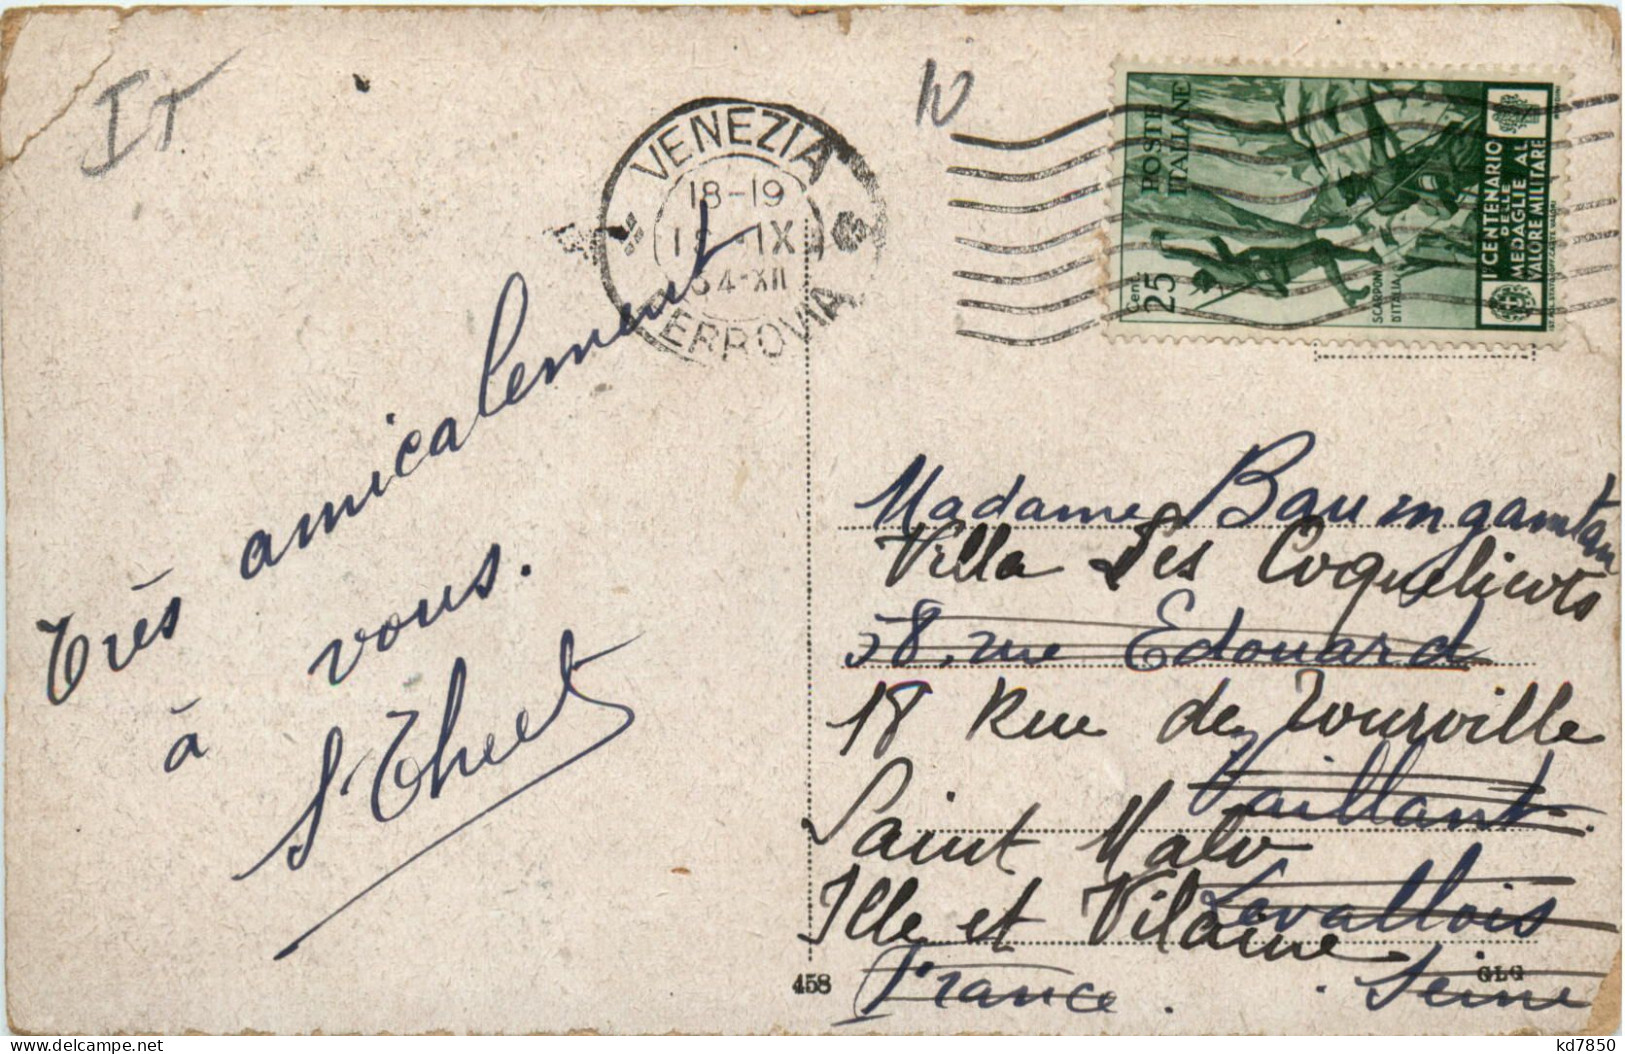 It
10
VENEZIA
18-19
IX
34-XII
FERROVIA
POSTE
ITALIANE
Cent.
25
SCARPONI
D'ITALIA
I° CENTENARIO
DELLE
MEDAGLIE AL
VALORE MILITARE
Très amicalement
à vous.
Madame Baumgamtan
Villa Les Coquelicots
58, rue Edouard
18 Rue de Tourville
Vaillant.
Saint Malo
Levallois
Ille et Vilaine
France. Seine
458
GLG
kd7850